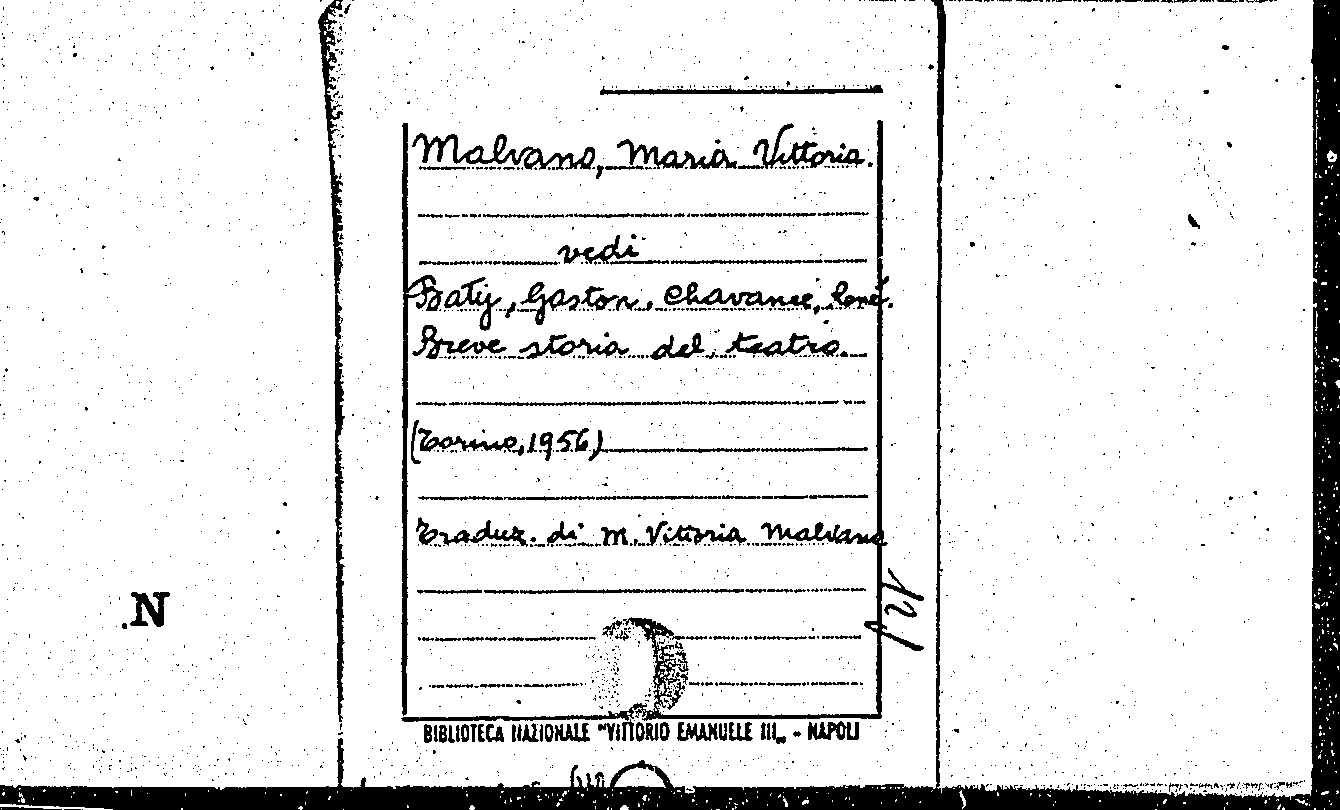 Malvano, Maria Vittoria.
vedi
Baty, Gaston, Chavance, René.
Breve storia del teatro.
(Torino, 1956)
Traduz. di M. Vittoria Malvano
N
BIBLIOTECA NAZIONALE "VITTORIO EMANUELE III„ - NAPOLI